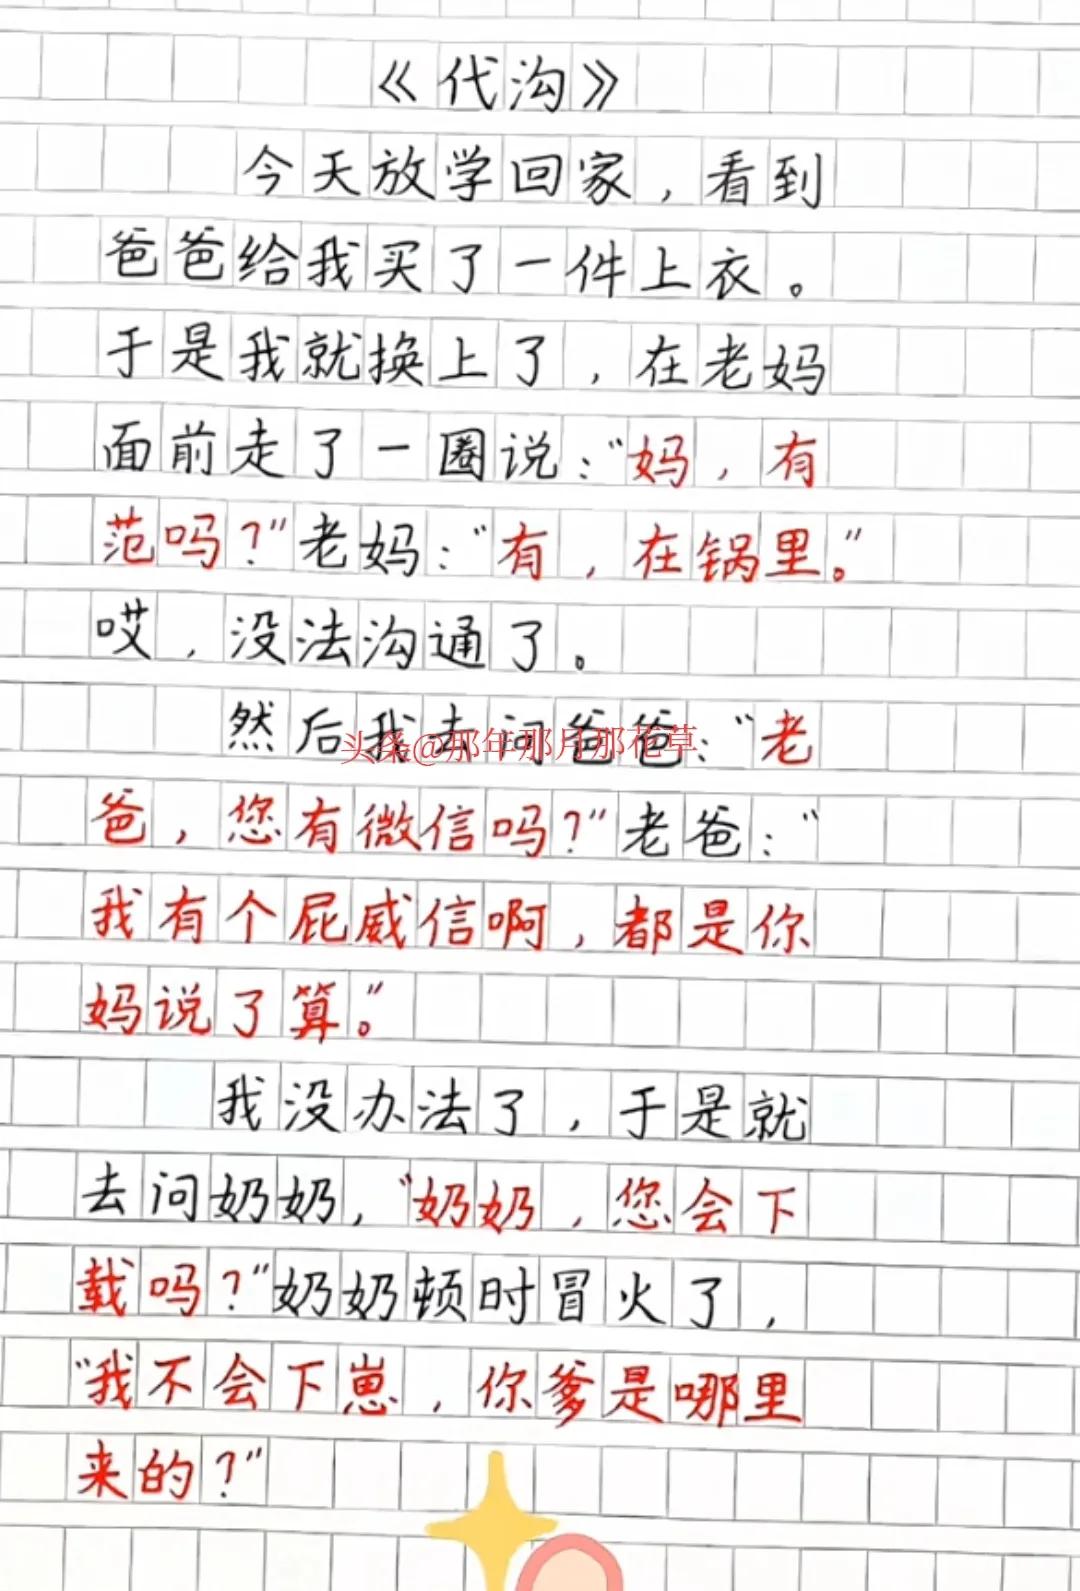 《代沟》
今天放学回家，看到
爸爸给我买了一件上衣。
于是我就换上了，在老妈
面前走了一圈说：“妈，有
范吗？”老妈：“有，在锅里。”
哎，没法沟通了。
然后我去问爸爸：“老
头条@那年那月那花草
爸，您有微信吗？”老爸：“
我有个屁威信啊，都是你
妈说了算。”
我没办法了，于是就
去问奶奶，“奶奶，您会下
载吗？”奶奶顿时冒火了，
“我不会下崽，你爹是哪里
来的？”